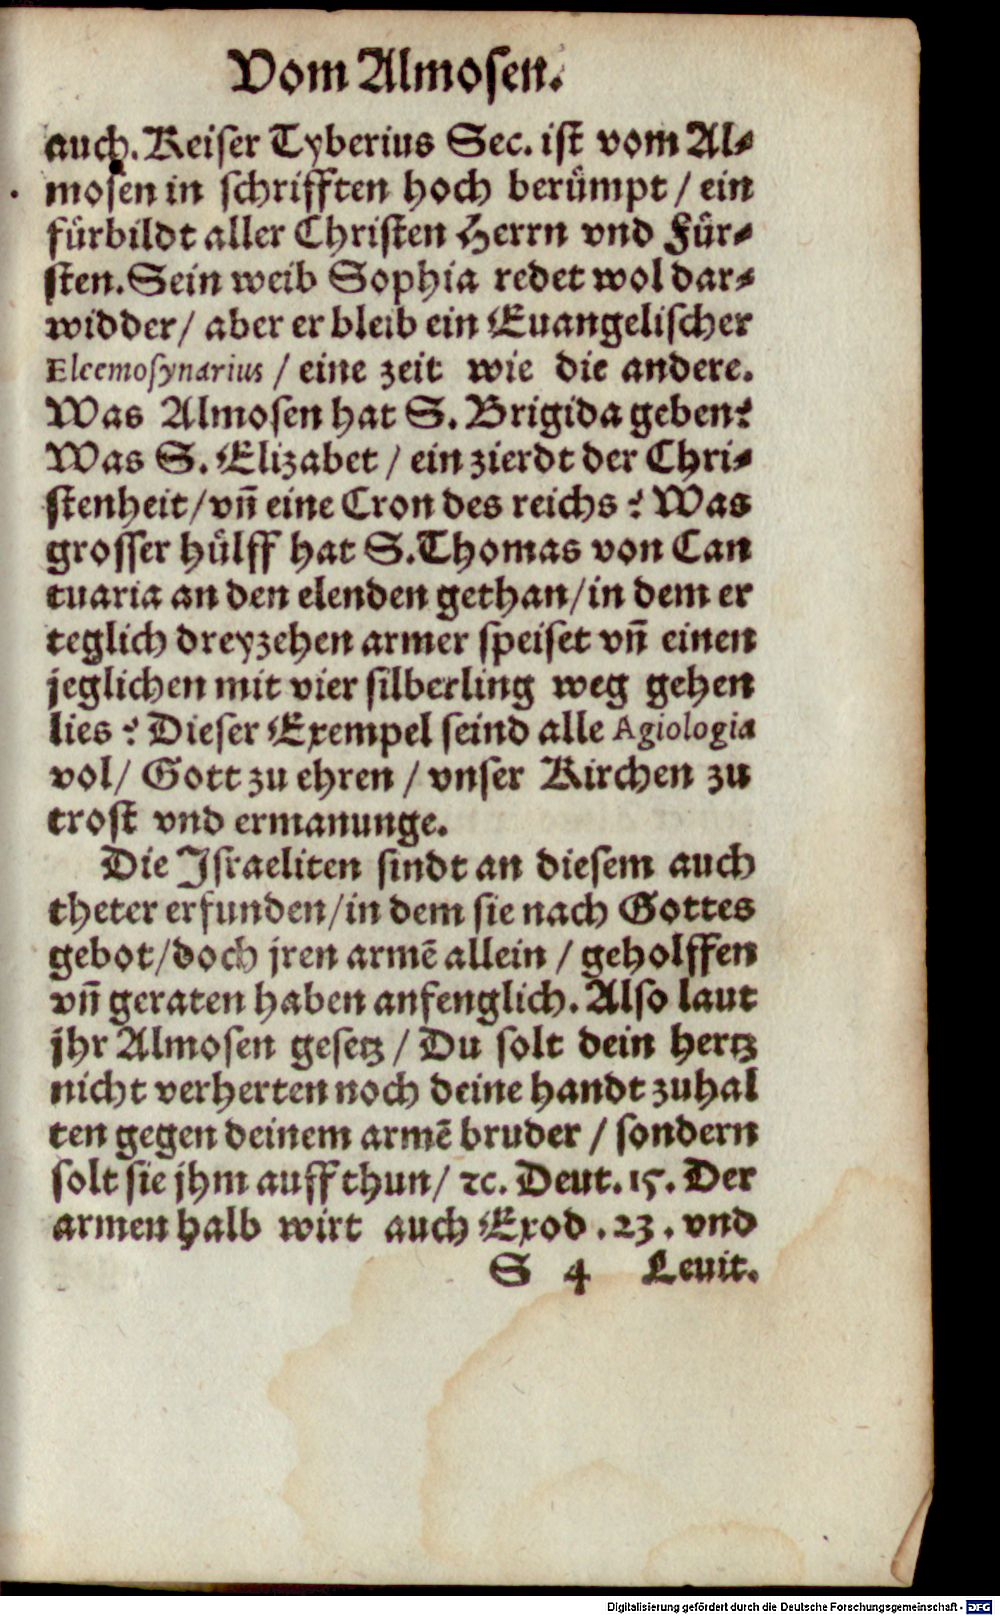 Vom Almosen.
auch. Keiser Tyberius Sec. ist vom Al⸗
mosen in schrifften hoch berümpt / ein
fürbildt aller Christen Herrn vnd Für⸗
sten. Sein weib Sophia redet wol dar⸗
widder/ aber er bleib ein Euangelischer
Eleemosynarius / eine zeit wie die andere.
Was Almosen hat S. Brigida geben?
Was S. Elizabet / ein zierdt der Chri⸗
stenheit/ vn̄ eine Cron des reichs? Was
grosser hülff hat S. Thomas von Can
tuaria an den elenden gethan/ in dem er
teglich dreyzehen armer speiset vn̄ einen
jeglichen mit vier silberling weg gehen
lies? Dieser Exempel seind alle Agiologia
vol/ Gott zu ehren / vnser Kirchen zu
trost vnd ermanunge.
Die Israeliten sindt an diesem auch
theter erfunden/ in dem sie nach Gottes
gebot/ doch jren armē allein / geholffen
vn̄ geraten haben anfenglich. Also laut
jhr Almosen gesetz / Du solt dein hertz
nicht verherten noch deine handt zuhal
ten gegen deinem armē bruder / sondern
solt sie jhm auff thun/ ꝛc. Deut. 15. Der
armen halb wirt auch Exod. 23. vnd
S 4 Leuit.
Digitalisierung gefördert durch die Deutsche Forschungsgemeinschaft - DFG